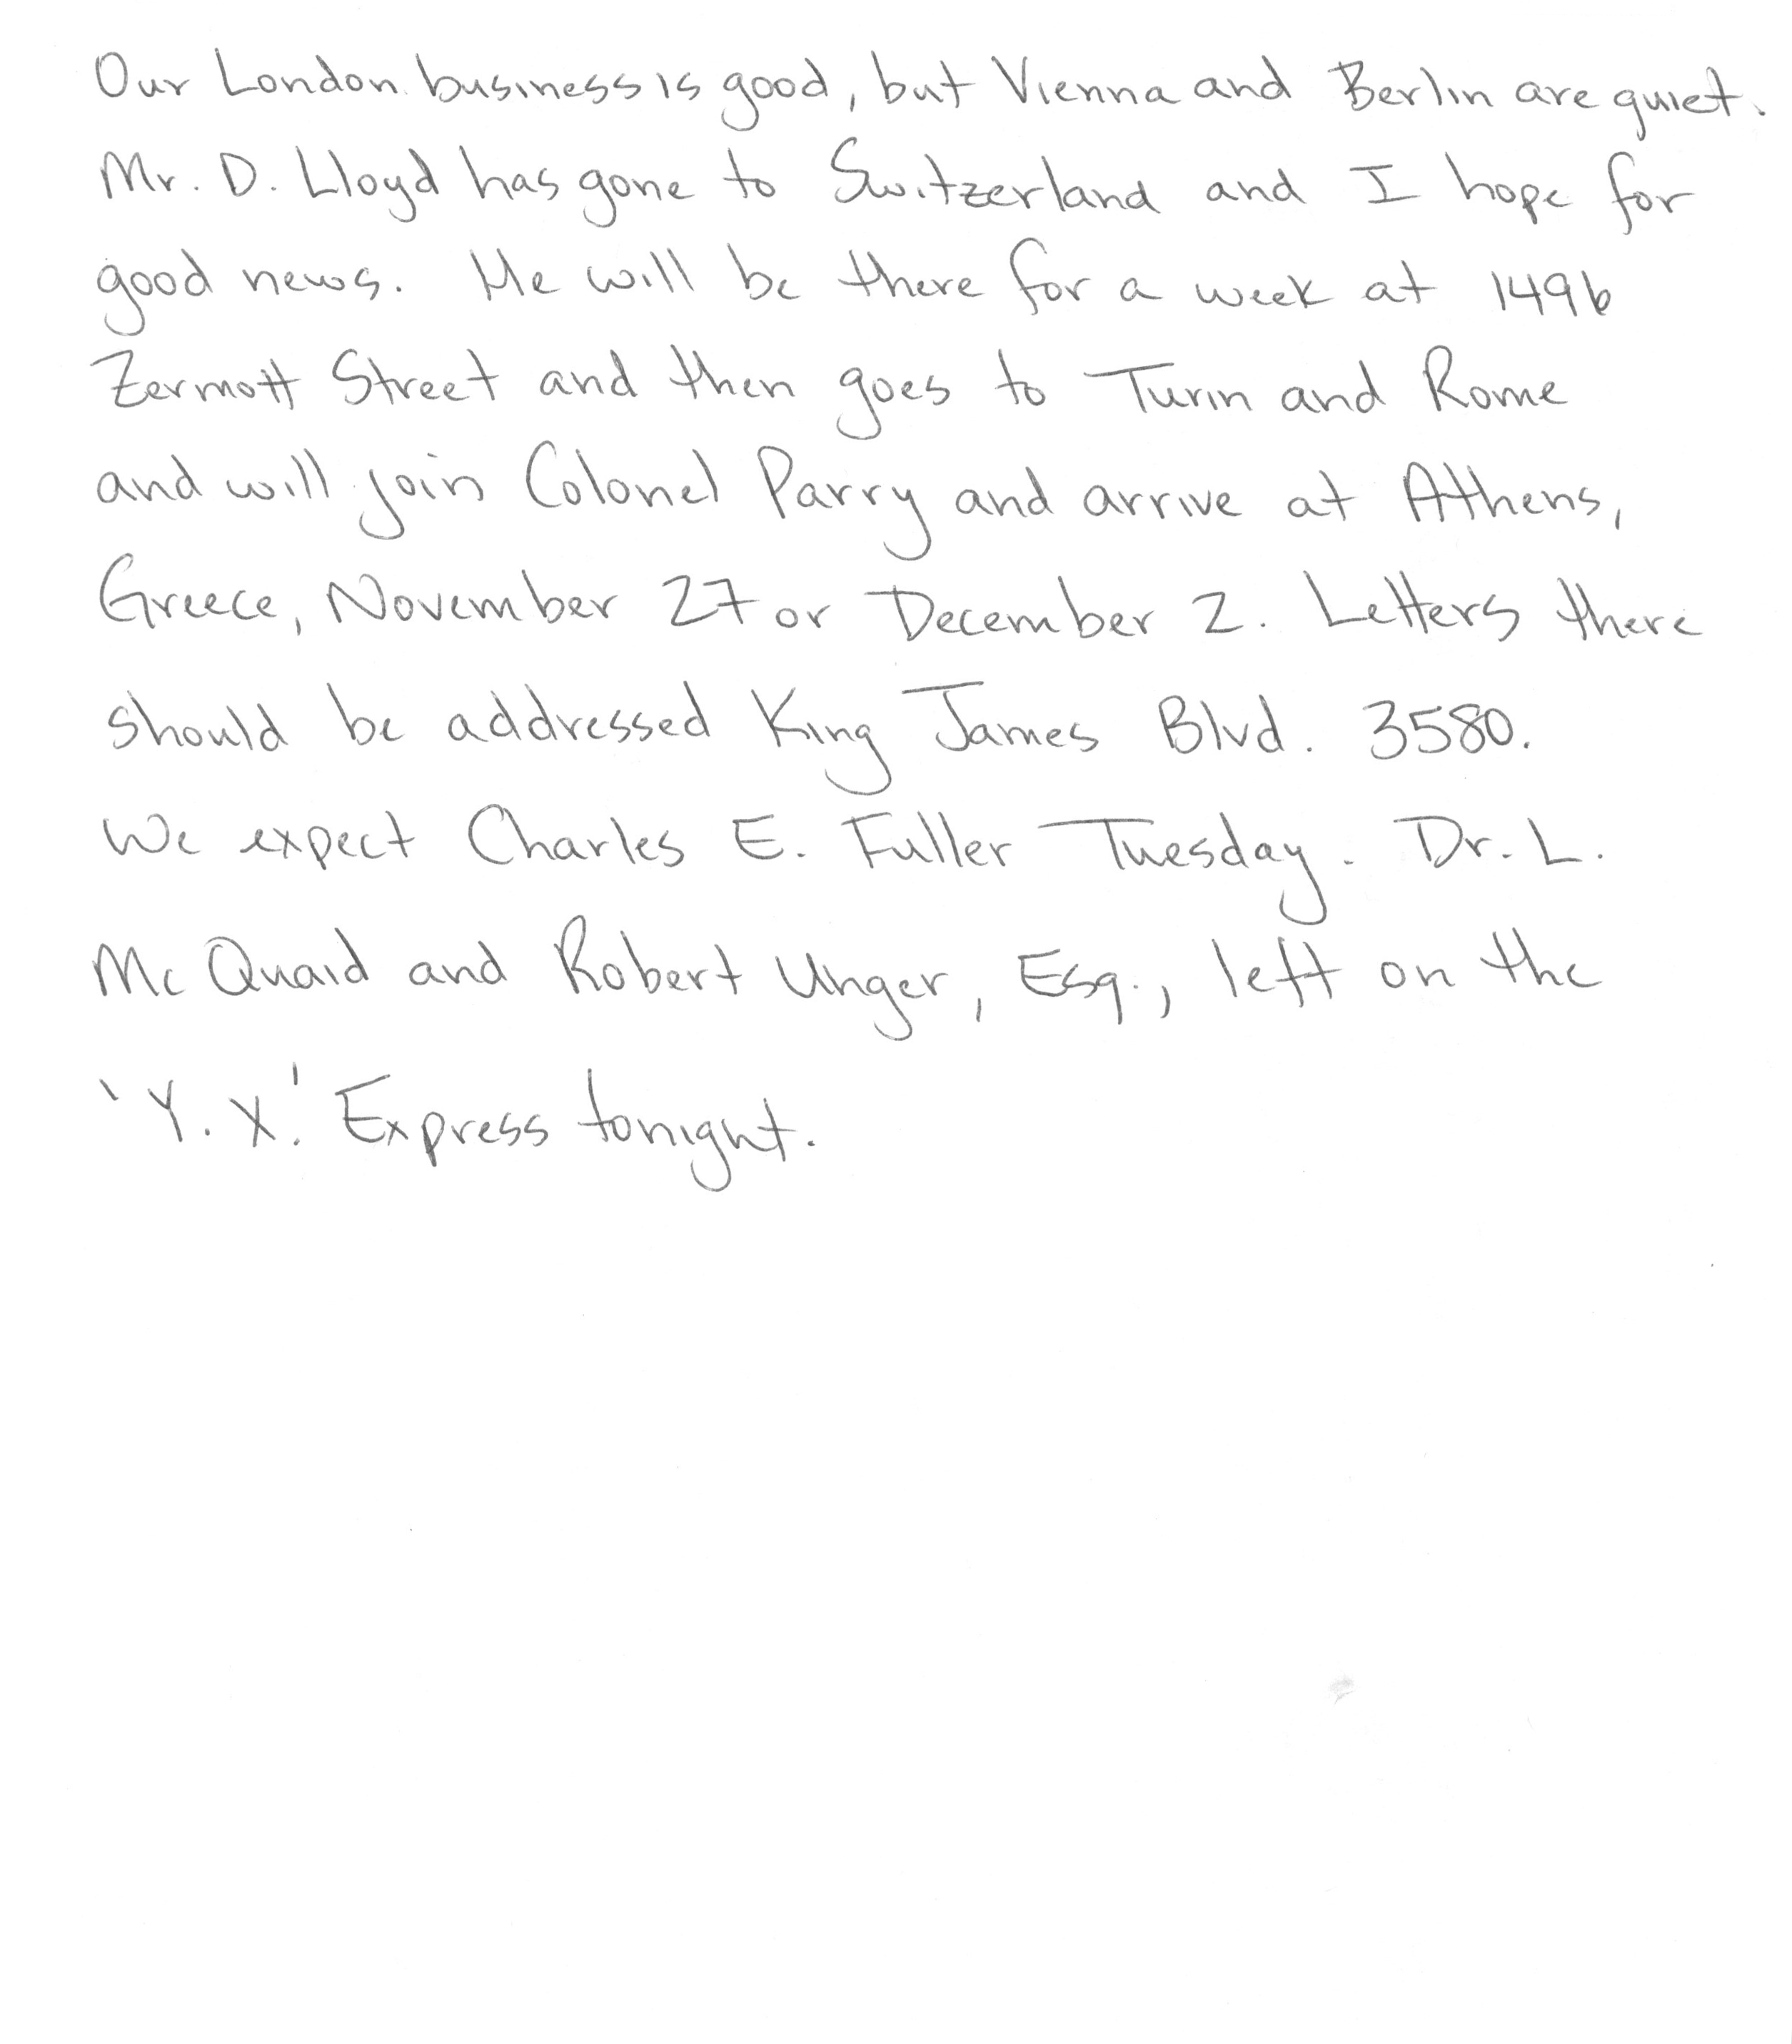 Our London business is good, but Vienna and Berlin are quiet.
Mr. D. Lloyd has gone to Switzerland and I hope for
good news. He will be there for a week at 1496
Zermott Street and then goes to Turin and Rome
and will join Colonel Parry and arrive at Athens,
Greece, November 27 or December 2. Letters there
should be addressed King James Blvd. 3580.
We expect Charles E. Fuller Tuesday. Dr. L.
McQuaid and Robert Unger, Esq., left on the
'Y. X.' Express tonight.